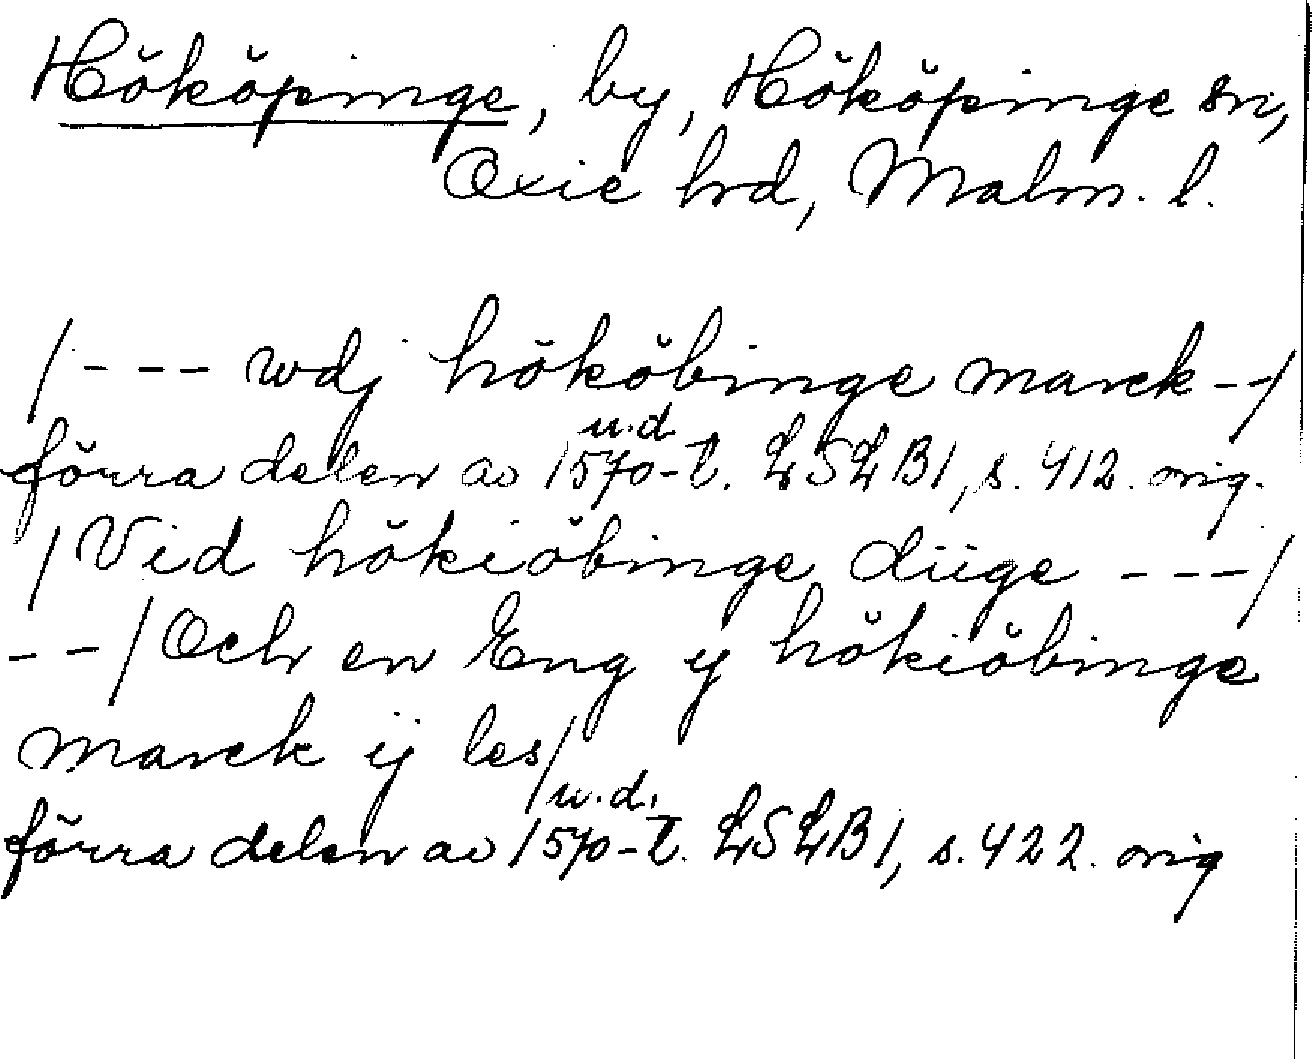 Hököpinge, by, Hököpinge sn,
Oxie hrd, Malm. l.
/--- wdj hököbinge marck --/
u.d.
förra delen av 1570-t. LSLB1, s. 412. orig.
/Vid hökiöbinge diige ---/
--/Och en Eng y hökiöbinge
marck ij les/
u.d.
förra delen av 1570-t. LSLB1, s. 422. orig